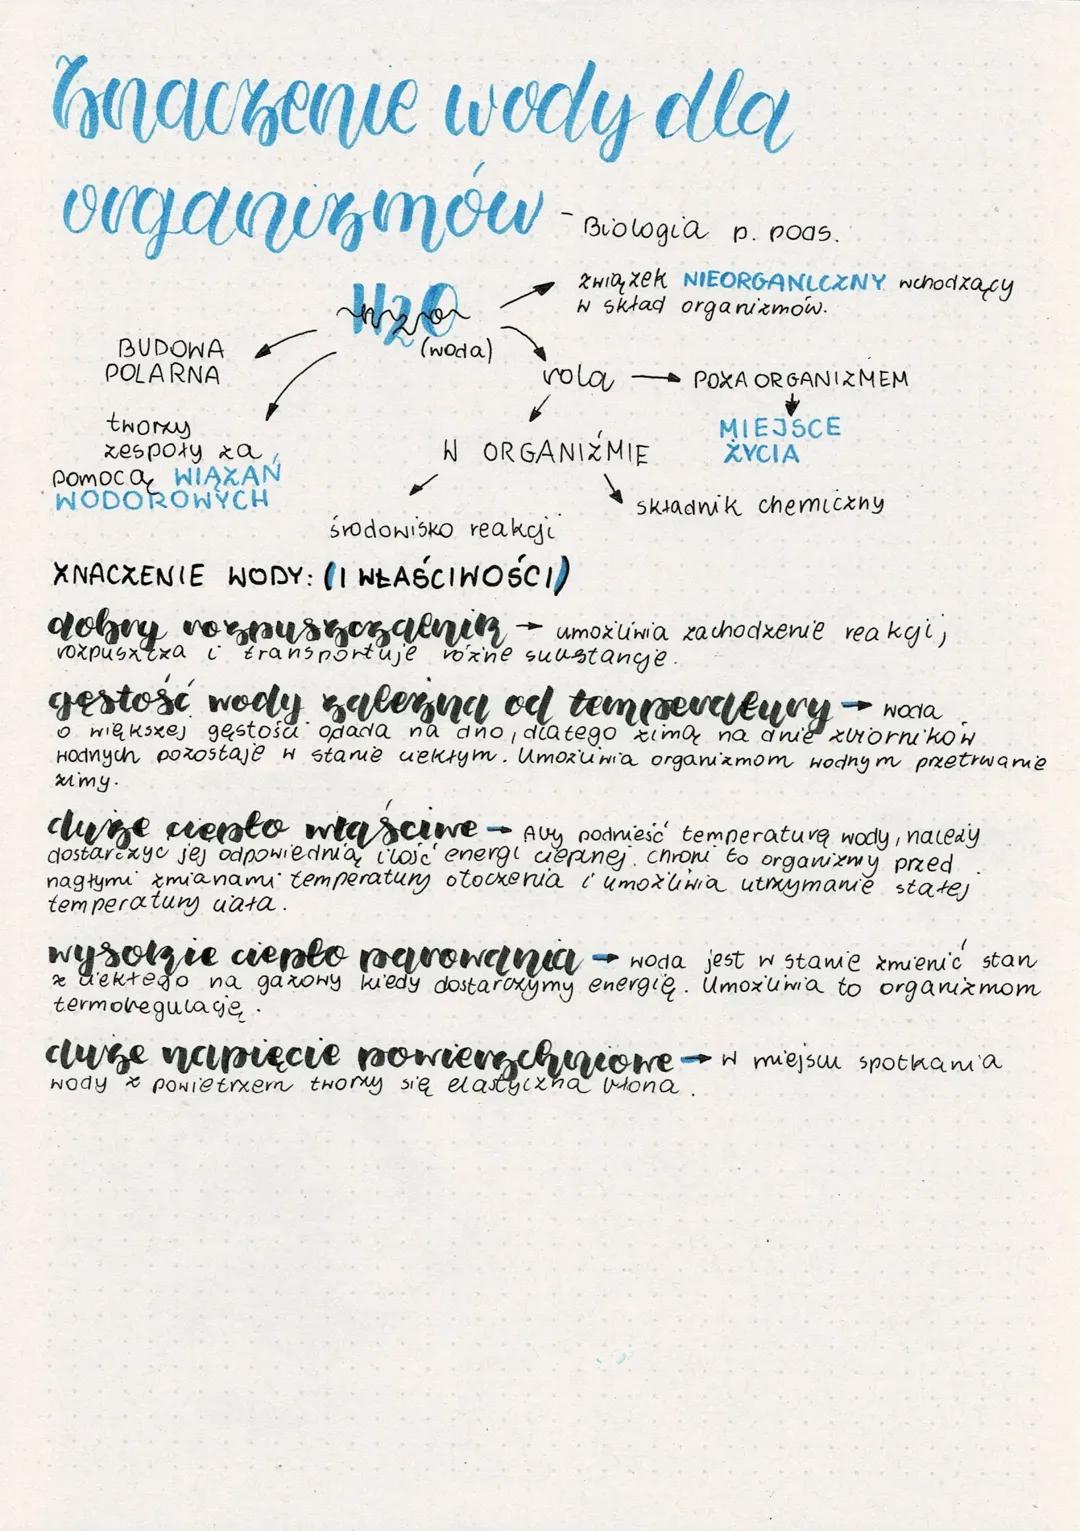 Znaczenie wody dla
organizmów - Biologia p. pods.
H2O
(woda)
związek NIEORGANICZNY wchodzący
w skład organizmów.
BUDOWA
POLARNA
tworzy
zespoły za
pomocą WIĄZAŃ
WODOROWYCH
rola → POZA ORGANIZMEM
MIEJSCE
ŻYCIA
W ORGANIŹMIE
składnik chemiczny
środowisko reakcji
ZNACZENIE WODY: (I WŁAŚCIWOŚCI)
dobry rozpuszczalnik → umożliwia zachodzenie reakcji,
rozpuszcza i transportuje różne substancje.
gęstość wody zależna od temperatury → woda
o większej gęstości opada na dno, dlatego zimą na dnie zbiorników
wodnych pozostaje w stanie ciekłym. Umożliwia organizmom wodnym przetrwanie
zimy.
duże ciepło właściwe → Aby podnieść temperaturę wody, należy
dostarczyć jej odpowiednią ilość energi cieplnej. chroni to organizmy przed
nagłymi zmianami temperatury otoczenia i umożliwia utrzymanie stałej
temperatury ciała.
wysokie ciepło parowania → woda jest w stanie zmienić stan
z ciekłego na gazowy kiedy dostarczymy energię. Umożliwia to organizmom
termoregulację.
duże napięcie powierzchniowe → w miejscu spotkania
wody z powietrzem tworzy się elastyczna błona.